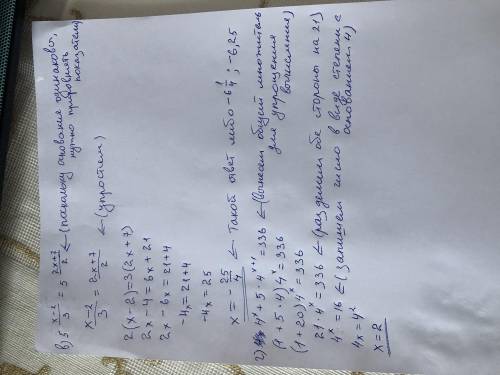 в) 5^(x-2)/3 = 5^(2x+7)/2 ← (поскольку онования одинаковы,
нужно прировнять
показатели)
(x-2)/3 = (2x+7)/2 ← (упростим)
2(x-2)=3(2x+7)
2x-4=6x+21
2x-6x=21+4
-4x=21+4
-4x=25
x = -25/4 ← Такой ответ либо -6 1/4 ; -6,25
г) 4^x+5·4^(x+1)=336 ← (Вынесем общий множитель
для упрощения
вычисления)
(1+5·4)4^x=336
(1+20)4^x=336
21·4^x=336 ← (разделим обе стороны на 21)
4^x=16 ← (запишем число в виде степени с
основанием 4)
4x=4²
x=2